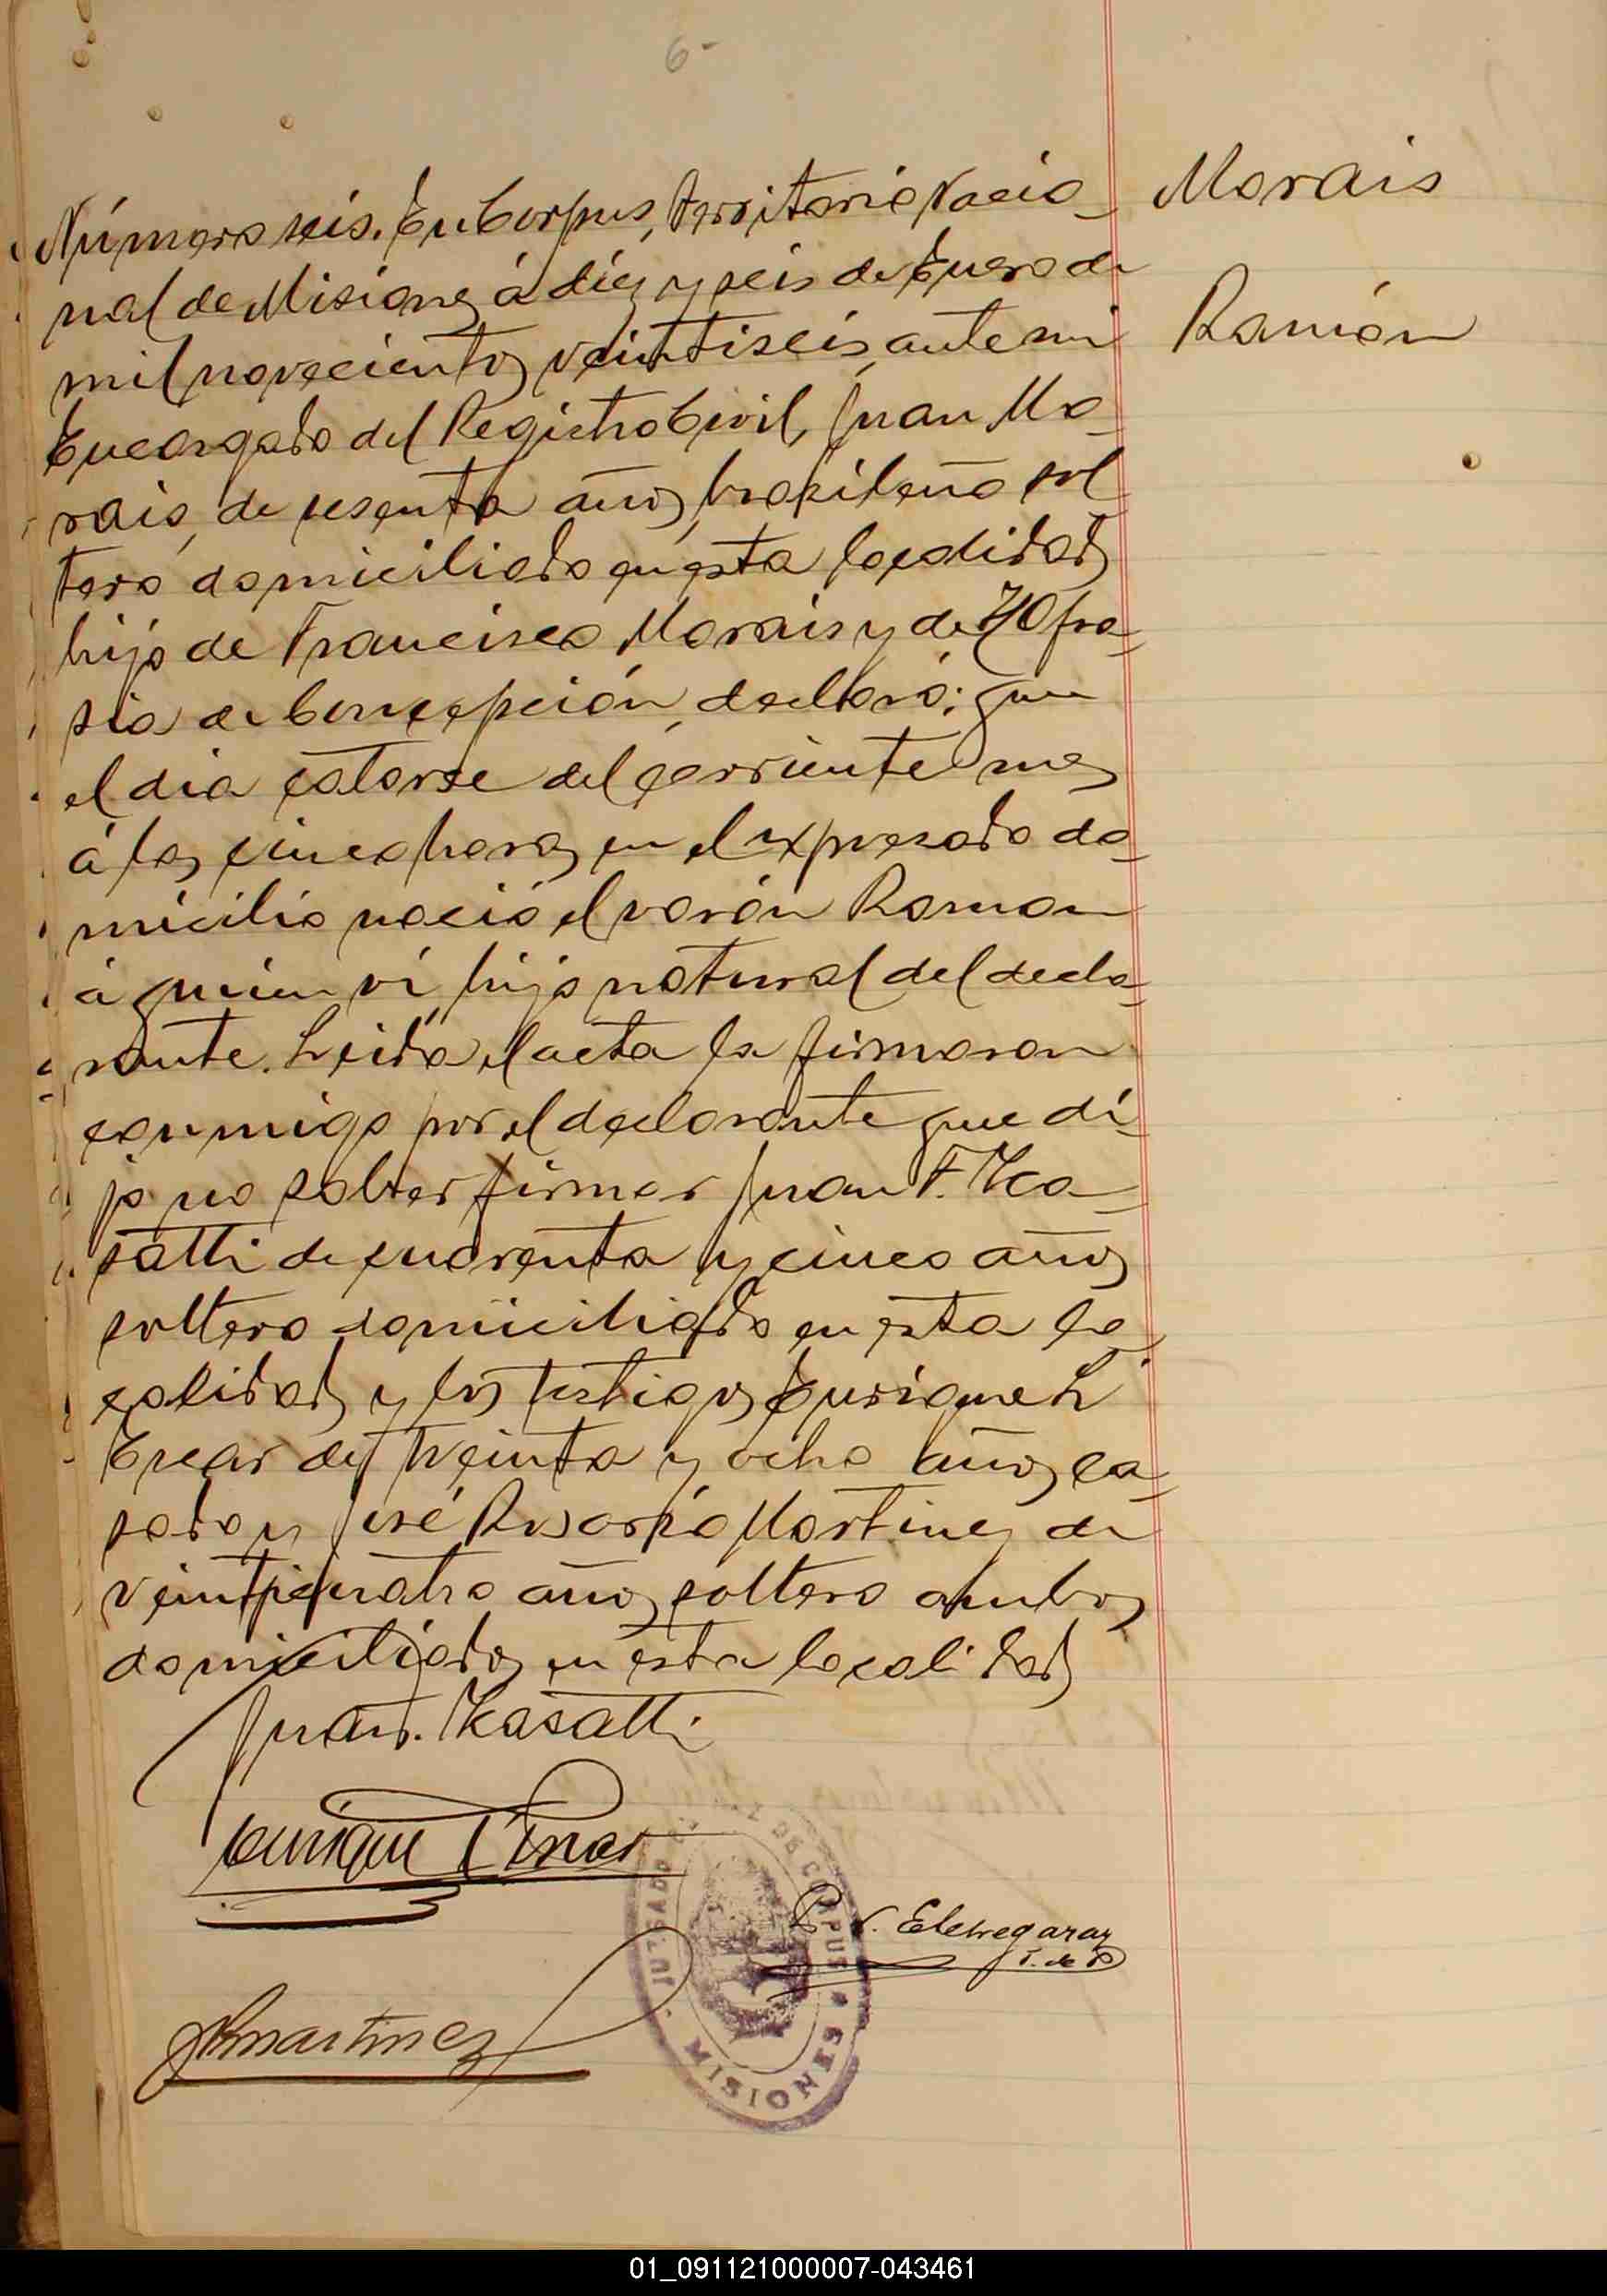 6-
Morais
Ramón
Número seis. En Corpus, Territorio Nacio_
nal de Misiones á diez y seis de Enero de
mil novecientos veintiseis, ante mi
Encargado del Registro Civil, Juan Mo_
rais, de sesenta años, brasileño sol
tero domiciliado en esta localidad
hijo de Francisco Morais y de
sia de Concepción, declaró: que
el dia catorse del corriente mes
á las cinco horas en el expresado do_
micilio nació el varón Ramon
á quien vi, hijo natural del decla_
rante. Leida el acta la firmaron
conmigo por el declarante que di_
jo no saber firmar Juan F. Ka_
satti de cuarenta y cinco años
soltero domiciliado en esta lo_
calidad y los testigos Enrique L
de treinta y ocho años ca_
sado y José Rosario Martinez de
veinticuatro años soltero ambos
domiciliados en esta localidad
Juan F. Kasatti
Enrique L
P. V. Etchegaray
J. de P
JR Martinez
JUZGADO DE PAZ DE CORPUS
MISIONES
01_091121000007-043461